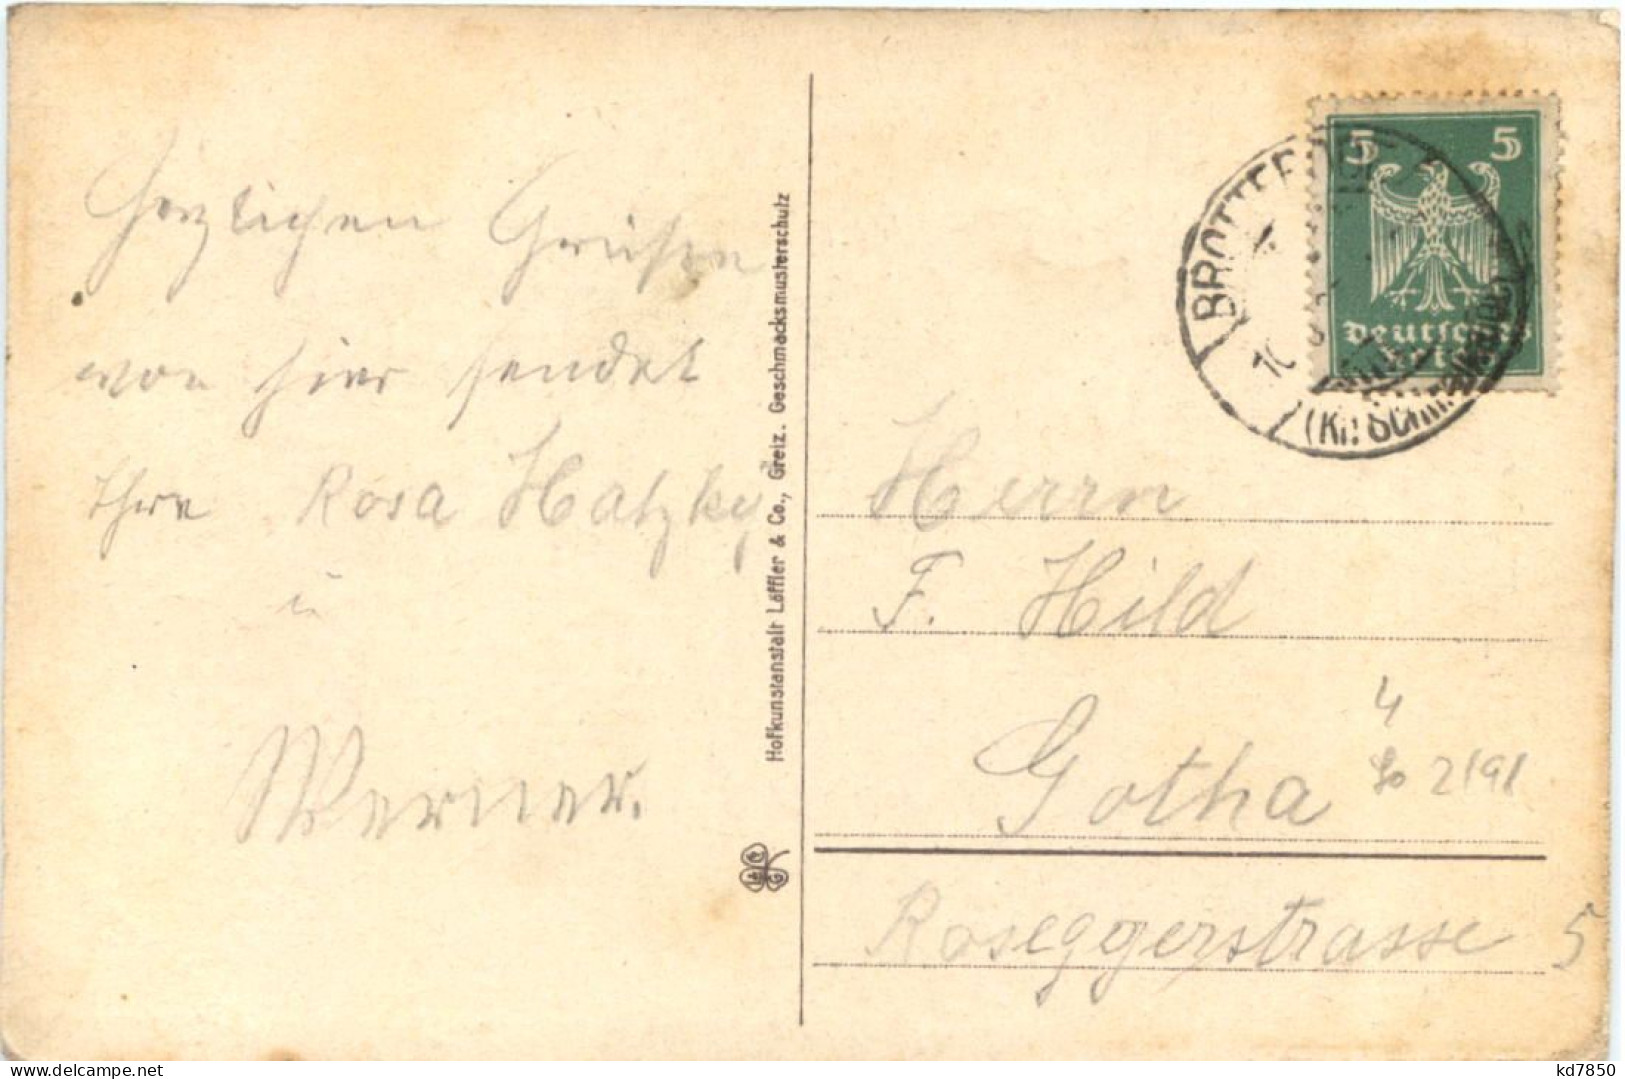 Herzlichen Grüßen
von hier sendet
Ihre Rosa Hatzky
u
Werner.
Hofkunstanstalt Löffler & Co., Greiz. Geschmacksmusterschutz
5 5
Deutsches
Reich
BROTTERODE
10
(Kr. Schmalkalden)
Herrn
F. Hild
Gotha
4
2191
Roseggerstrasse 5
delcampe.net
kd7850